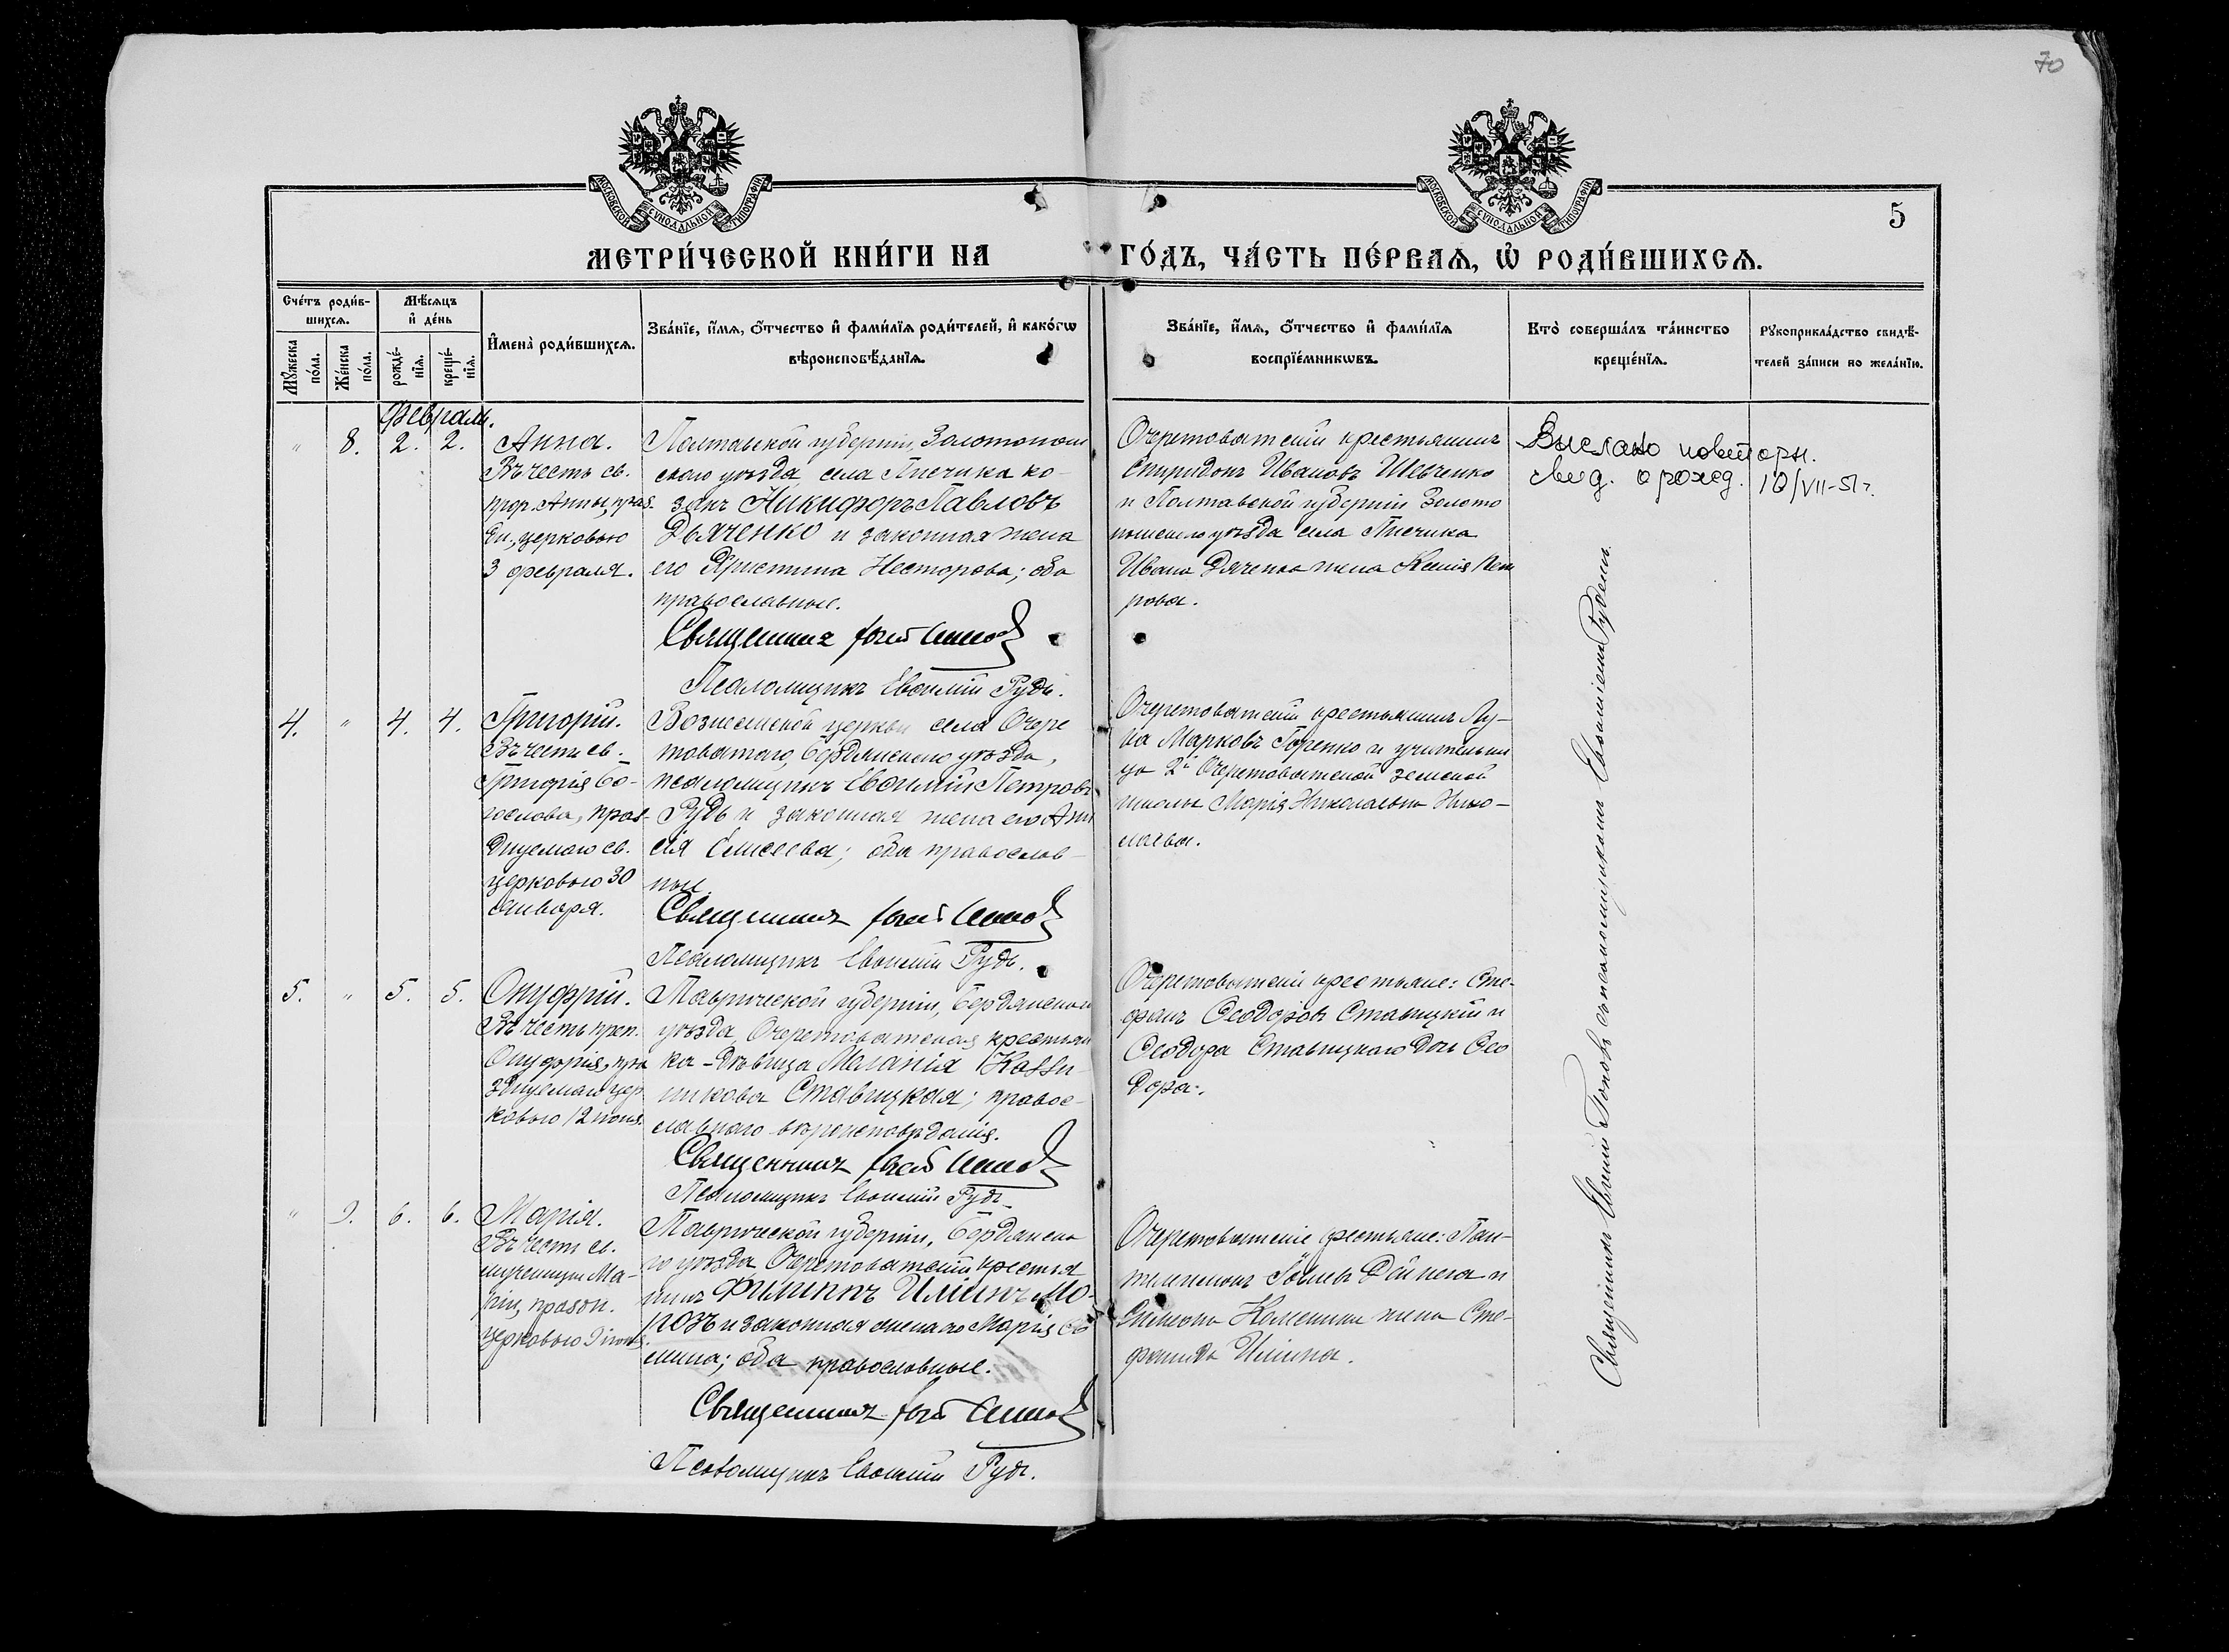 70
МОСКОВСКОЙ СѴНОДАЛЬНОЙ ТИПОГРАФІИ
МОСКОВСКОЙ СѴНОДАЛЬНОЙ ТИПОГРАФІИ
5
МЕТРИ́ЧЕСКОЙ КНИ́ГИ НА ГО́ДЪ, ЧА́СТЬ ПЕ́РВАѦ, Ѡ҆ РОДИ́ВШИХСѦ.
Сче́тъ роди́в-
шихсѧ.
Мꙋ́жеска по́ла.
Же́нска по́ла.
Мѣ́сѧцъ
и҆ де́нь
рожде́-
нїѧ.
креще́-
нїѧ.
И҆мена̀ роди́вшихсѧ.
Зва́нїе, и҆́мѧ, ѻ҆́тчество и҆ фами́лїѧ роди́телей, и҆ како́гѡ
вѣроисповѣ́данїѧ.
Зва́нїе, и҆́мѧ, ѻ҆́тчество и҆ фами́лїѧ
воспрїе́мникѡвъ.
Кто̀ соверша́лъ та́инство
креще́нїѧ.
Рꙋкоприкла́дство свидѣ́-
телей за́писи по жела́нїю.
Февраль.
" 8. 2. 2.
Анна.
Въ честь св.
прор. Анны, праз.
Ея, церковью
3 февраля.
Полтавской губерніи, Золотонош
скаго уѣзда, села Пѣсчика ко-
закъ Никифоръ Павловъ
Дьяченко и законная жена
его Христина Несторова; оба
православные.
Священникъ
Псаломщикъ Евѳимій Рудь.
Очеретоватскій крестьянинъ
Спиридонъ Ивановъ Шевченко
и Полтавской губерніи Золото
ношскаго уѣзда села Пѣсчика
Ивана Дяченка жена Ксенія Пет
рова.
Выслано повторн.
свид. о рожд. 10/VII-51г.
4. " 4. 4.
Григорій.
Въ честь св.
Григорія Бо-
гослова, праз-
днуемаго св.
церковью 30
января.
Вознесенской церкви села Очере
товатаго, Бердянскаго уѣзда,
псаломщикъ Евѳимій Петровъ
Рудь и законная жена его Ани
сія Елисеева; оба православ-
ные.
Священникъ
Псаломщикъ Евѳимій Рудь.
Очеретоватскій крестьянинъ Лу-
ка Марковъ Горенко и учительни
ца 2й Очеретоватской земской
школы Марія Николаевна Нико-
лаева.
5. " 5. 5.
Онуфрій.
Въ честь преп.
Онуфрія, пра
зднуемаго цер
ковью 12 іюня.
Таврической губерніи, Бердянскаго
уѣзда, Очеретоватская крестьян
ка-дѣвица Меланія
никова Ставицкая; правос-
лавнаго вѣроисповѣданія.
Священникъ
Псаломщикъ Евѳимій Рудь.
Очеретоватскіе крестьяне: Сте-
фанъ Ѳеодоровъ Ставицкій и
Ѳеодора Ставицкаго дочь Ѳео
дора.
" 9. 6. 6.
Марія.
Въ честь св.
мученицы Ма-
ріи, празон.
церковью 9 іюня.
Таврической губерніи, Бердянска
го уѣзда Очеретоватскій крестья
нинъ Филиппъ Ильинъ Мо-
розъ и законная жена его Марія Се
мина; оба православные.
Священникъ
Псаломщикъ Евѳимій Рудь.
Очеретоватскіе крестьяне: Пан-
телеимонъ Дейнега и
Симеона жена Сте-
фанида Ильина.
Священникъ Евгеній Поповъ съ псаломщикомъ Евѳиміемъ Рудемъ.